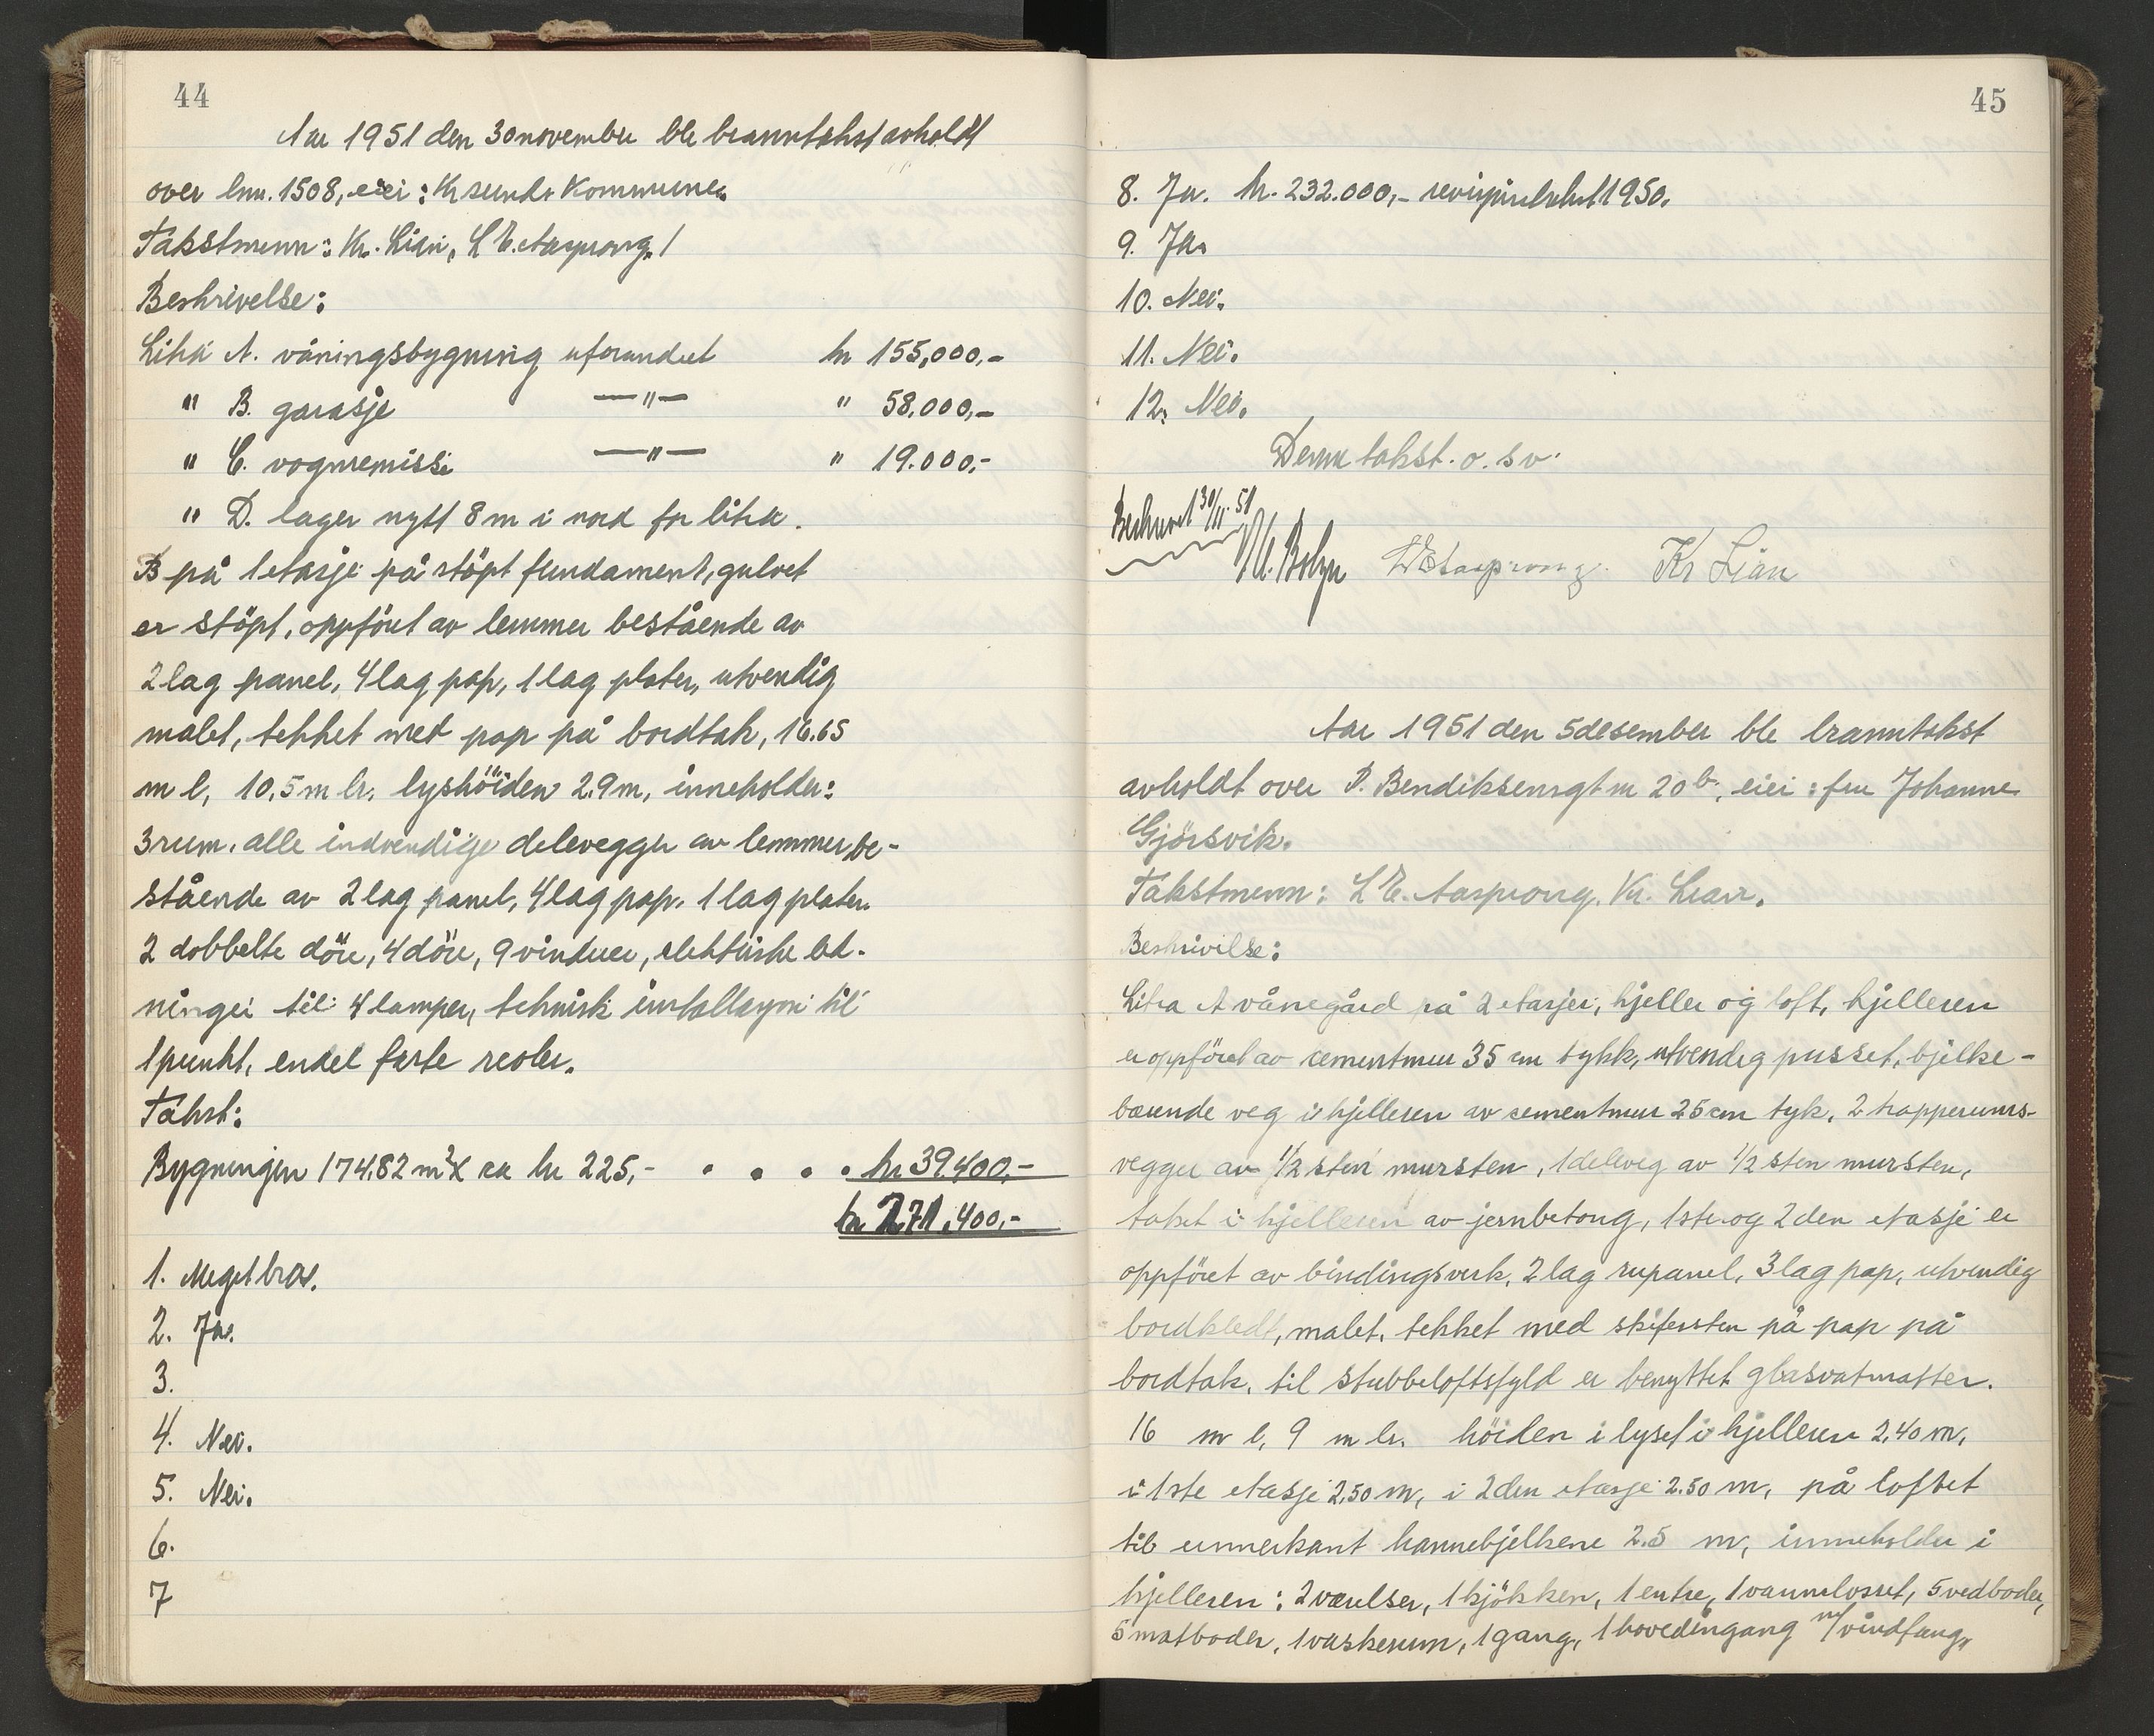 44
Aar 1951 den 30 november ble branntakst avholdt
over lnr. 1508, eiei: Kr.sunds Kommune.
Takstmenn: Kr. Lian, L E. Aasprong. /
Beskrivelse:
Litra A. våningsbygning uforandret kr 155,000,-
" B. garasje —"— " 58.000,-
" C. vognremisse —"— " 19.000,-
" D. lager nytt 8 m i nord for litra.
B på 1 etasje på stöpt fundament, gulvet
er stöpt, oppföret av lemmer bestående av
2 lag panel, 4 lag pap, 1 lag plater, utvendig
malet, tekket med pap på bordtak, 16.65
m l, 10,5 m br. lyshöiden 2.9 m, inneholder:
3 rum. alle indvendige delevegger av lemmer be-
stående av 2 lag panel, 4 lag pap. 1 lag plater.
2 dobbelte döre, 4 döre, 9 vinduer, elektriske led-
ninger til 4 lamper, teknisk installasjon til
1 punkt, endel faste reoler.
Takst:
Bygningen 174.82 m² x ca kr 225,- . . . . kr 39.400,-
kr 271.400,-
1. Meget bra.
2. Ja.
3.
4. Nei.
5. Nei.
6.
7
45
8. Ja. kr. 232.000,- 1950.
9. Ja.
10. Nei.
11. Nei.
12. Nei.
Denne takst. o. s v.
Beskrevet 30/11. 51
L E Aasprong. Kr Lian
Aar 1951 den 5 desember ble branntakst
avholdt over P. Bendiksensgt nr 20 b., eiei: fru Johanne
Gjörsvik.
Takstmenn: L E. Aasprong. Kr. Lian.
Beskrivelse:
Litra A vånegård på 2 etasjer, kjeller og loft, kjelleren
er oppföret av cementmur 35 cm tykk, utvendig pusset. bjelke-
bærende veg i kjelleren av cementmur 25 cm tyk. 2 trapperums-
vegger av 1/2 sten mursten, 1 deleveg av 1/2 sten mursten,
taket i kjelleren av jernbetong, 1ste og 2den etasje er
oppföret av bindingsverk, 2 lag rupanel, 3 lag pap, utvendig
bordkledt, malet. tekket med skifersten på pap på
bordtak. til stubbeloftsfyld er benyttet glasvatmatter.
16 m l, 9 m br. höiden i lyset i kjelleren 2.40 m,
i 1ste etasje 2.50 m, i 2den etasje 2.50 m, på loftet
til unnerkant hannebjelkene 2.5 m, inneholder i
kjelleren: 2 værelser, 1 kjökken, 1 entre, 1 vannklosset, 5 vedboder,
5 matboder, 1 vaskerum, 1 gang, 1 hovedingang m/vindfang,